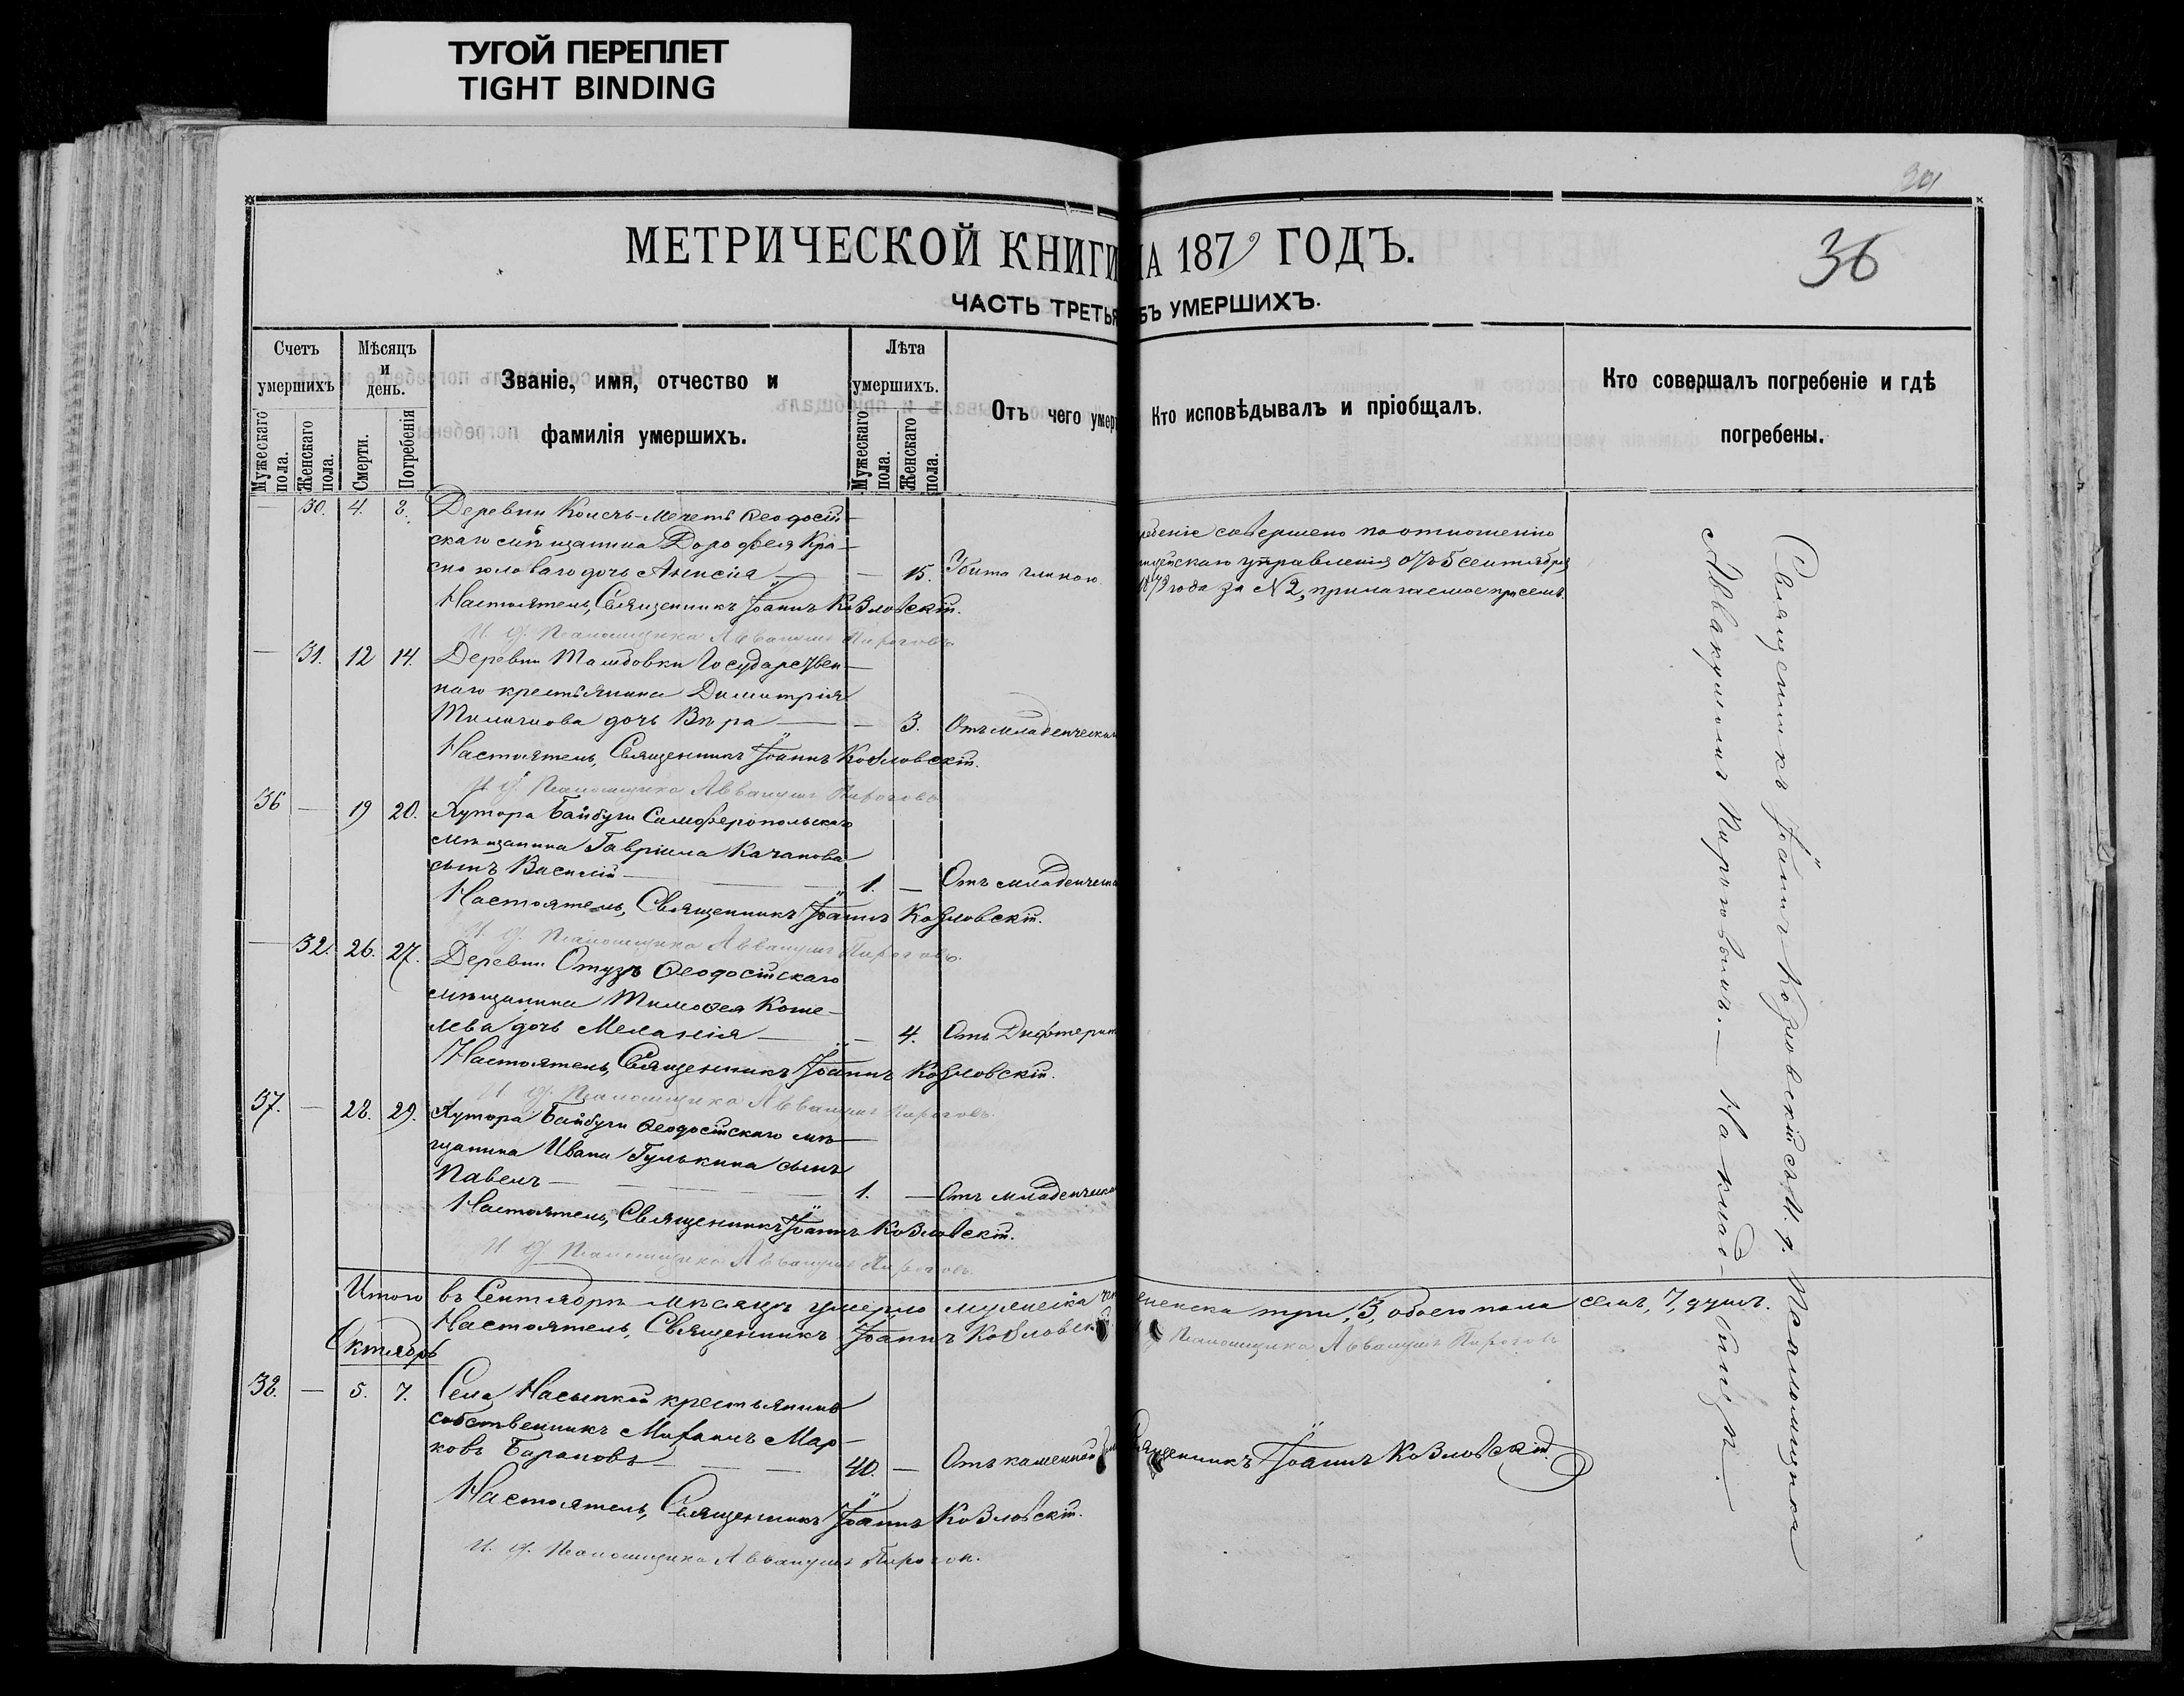 ТУГОЙ ПЕРЕПЛЕТ
TIGHT BINDING
МЕТРИЧЕСКОЙ КНИГИ НА 1879 ГОДЪ.
36
ЧАСТЬ ТРЕТЬЯ ОБЪ УМЕРШИХЪ.
Счетъ умершихъ
Мужескаго пола.
Женскаго пола.
Мѣсяцъ и день.
Смерти.
Погребенія
Званіе, имя, отчество и
фамилія умершихъ.
Лѣта умершихъ.
Мужескаго пола.
Женскаго пола.
Отъ чего умер
Кто исповѣдывалъ и пріобщалъ.
Кто совершалъ погребеніе и гдѣ
погребены.
— 30. 4. 8. Деревни Колечь-Мечеть Ѳеодосій-
скаго мѣщанина Дороѳея Кра-
сноголоваго дочь Анисія — — 15. Убита глиною.
ребеніе совершено по отношенію
лицейскаго управленія отъ 5 сентября
1879 года за № 2, прилагаемое при семъ.
Настоятель, Священникъ Іоаннъ Козловскій.
И. д. Псаломщика Аввакумъ Пироговъ.
— 31. 12 14. Деревни Тамбовки Государствен-
наго крестьянина Димитрія
дочь Вѣра — — 3. Отъ младенческа
Настоятель, Священникъ Іоаннъ Козловскій.
И. д. Псаломщика Аввакумъ Пироговъ.
36 — 19 20. Хутора Байбуги Симферопольскаго
мѣщанина Гавріила Качанова
сынъ Василій — 1. — Отъ младенческа
Настоятель, Священникъ Іоаннъ Козловскій.
И. д. Псаломщика Аввакумъ Пироговъ.
— 32. 26. 27. Деревни Отузъ Ѳеодосійскаго
мѣщанина Тимоѳея Коше-
лева дочь Меланія — — 4. Отъ Дифтерит
Настоятель, Священникъ Іоаннъ Козловскій.
И. д. Псаломщика Аввакумъ Пироговъ.
37. — 28. 29. Хутора Байбуги Ѳеодосійскаго мѣ-
щанина Ивана Гулькина сынъ
Павелъ — 1. — Отъ младенческа
Настоятель, Священникъ Іоаннъ Козловскій.
И. д. Псаломщика Аввакумъ Пироговъ.
Итого въ Сентябрѣ мѣсяцѣ умерло мужеска женска три, 3, обоего пола семь, 7, душъ.
Настоятель, Священникъ Іоаннъ Козловскій
Псаломщика Аввакумъ Пироговъ
Октябрь
38. — 5. 7. Села Насыпкой крестьянинъ
собственникъ Михаилъ Мар-
ковъ Барановъ — 40. — Отъ каменной
Священникъ Іоаннъ Козловскій.
Настоятель, Священникъ Іоаннъ Козловскій.
И. д. Псаломщика Аввакумъ Пирогов.
Священникъ Іоаннъ Козловскій съ И. д. Псаломщика
Аввакумомъ Пироговымъ. — На клад-
бищѣ. —